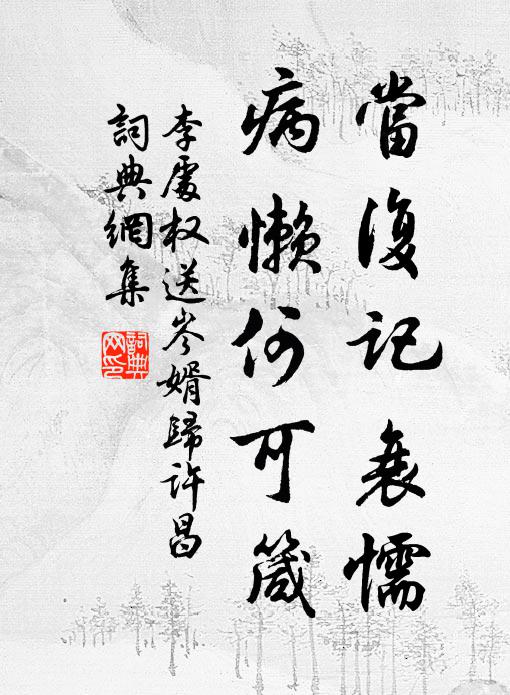 當復記衰懦
病懒何可箴
李處权送岑婿歸许昌
詞典網集
詞典網印